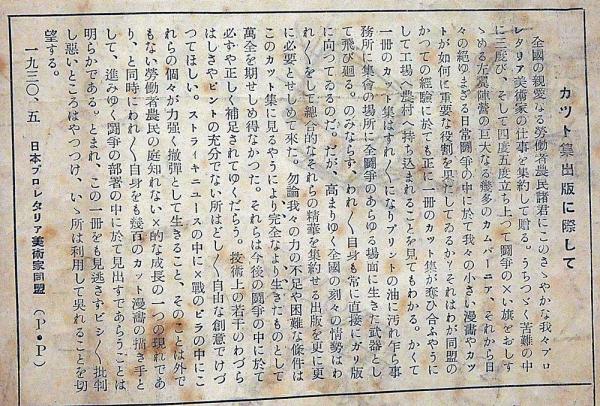 カット集出版に際して
全國の親愛なる勞働者農民諸君にこのさゝやかな我々プロ
レタリア美術家の仕事を集約して贈る。うちつゞく苦難の中
に三度び、そして四度五度立ち上つて鬪爭の×い旗をおしす
ゝめる左翼陣營の巨大なる幾多のカムパーニア、それから日
々の絶ゆまざる日常鬪爭の中に於て我々の小さい漫畫やカッ
トが如何に重要な役割を果たしてゐるか?それはわが同盟の
かつての經驗に於ても正に一冊のカット集が奪ひ合ふやうに
して工場へ農村へ持ち込まれることを見てもわかる。かくて
一冊のカット集はすれ／＼になりプリントの油に汚れ乍ら事
務所に集會の場所に全鬪爭のあらゆる場面に生きた武器とし
て飛び廻る。のみならず、われ／＼自身も常に直接にガリ版
に向つてゐるのだ。だが、高まりゆく全國の刻々の情勢はわ
れ／＼をして總合的なそれらの精華を集約せる出版を更に更
に必要とせしめて來た。勿論我々の力の不足や困難な條件は
このカット集に見るやうにより完全なより生きたものとして
萬全を期せしめ得なかつた。それらは今後の鬪爭の中に於て
必ずや正しく補足されてゆくだらう。技術上の若干のわづら
はしさやピントの充分でない所はどし／＼自由な創意でけづ
つてほしい。ストライキニュースの中に×戰のビラの中にこ
れらの個々が力強く撤彈として生きること、そのことは外で
もない勞働者農民の庭知れない、×的な成長の一つの現れであ
り、と同時にわれ／＼自身をも幾百のカット漫畫の描き手と
して、進みゆく鬪爭の部署の中に於て見出すであらうことは
明らかである。とまれ、この一冊をも見逃さずビシ／＼批判
し惡いところはやつつけ、いゝ所は利用して吳れることを切
望する。
一九三〇、五 日本プロレタリア美術家同盟 （P・P）